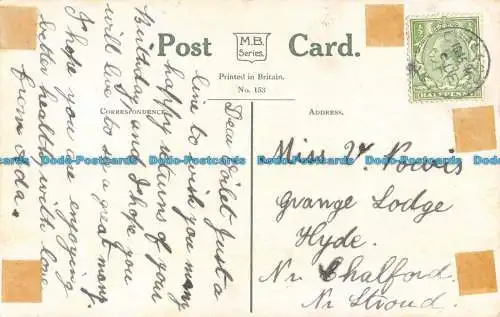 Post Card.
M.B.
Series.
Printed in Britain.
No. 153
CORRESPONDENCE.
ADDRESS.
HALFPENNY
Dear Vilet Just a
line to wish you many
happy returns of your
Birthday, and I hope you
will live to see a great many.
I hope you are enjoying
better health, with love
from Ada.
Miss V. Powis
Grange Lodge
Hyde.
Nr Chalford.
Nr Stroud.
Dodo-Postcards Dodo-Postcards Dodo-Postcards Dodo-Postcards Dodo-Postcards